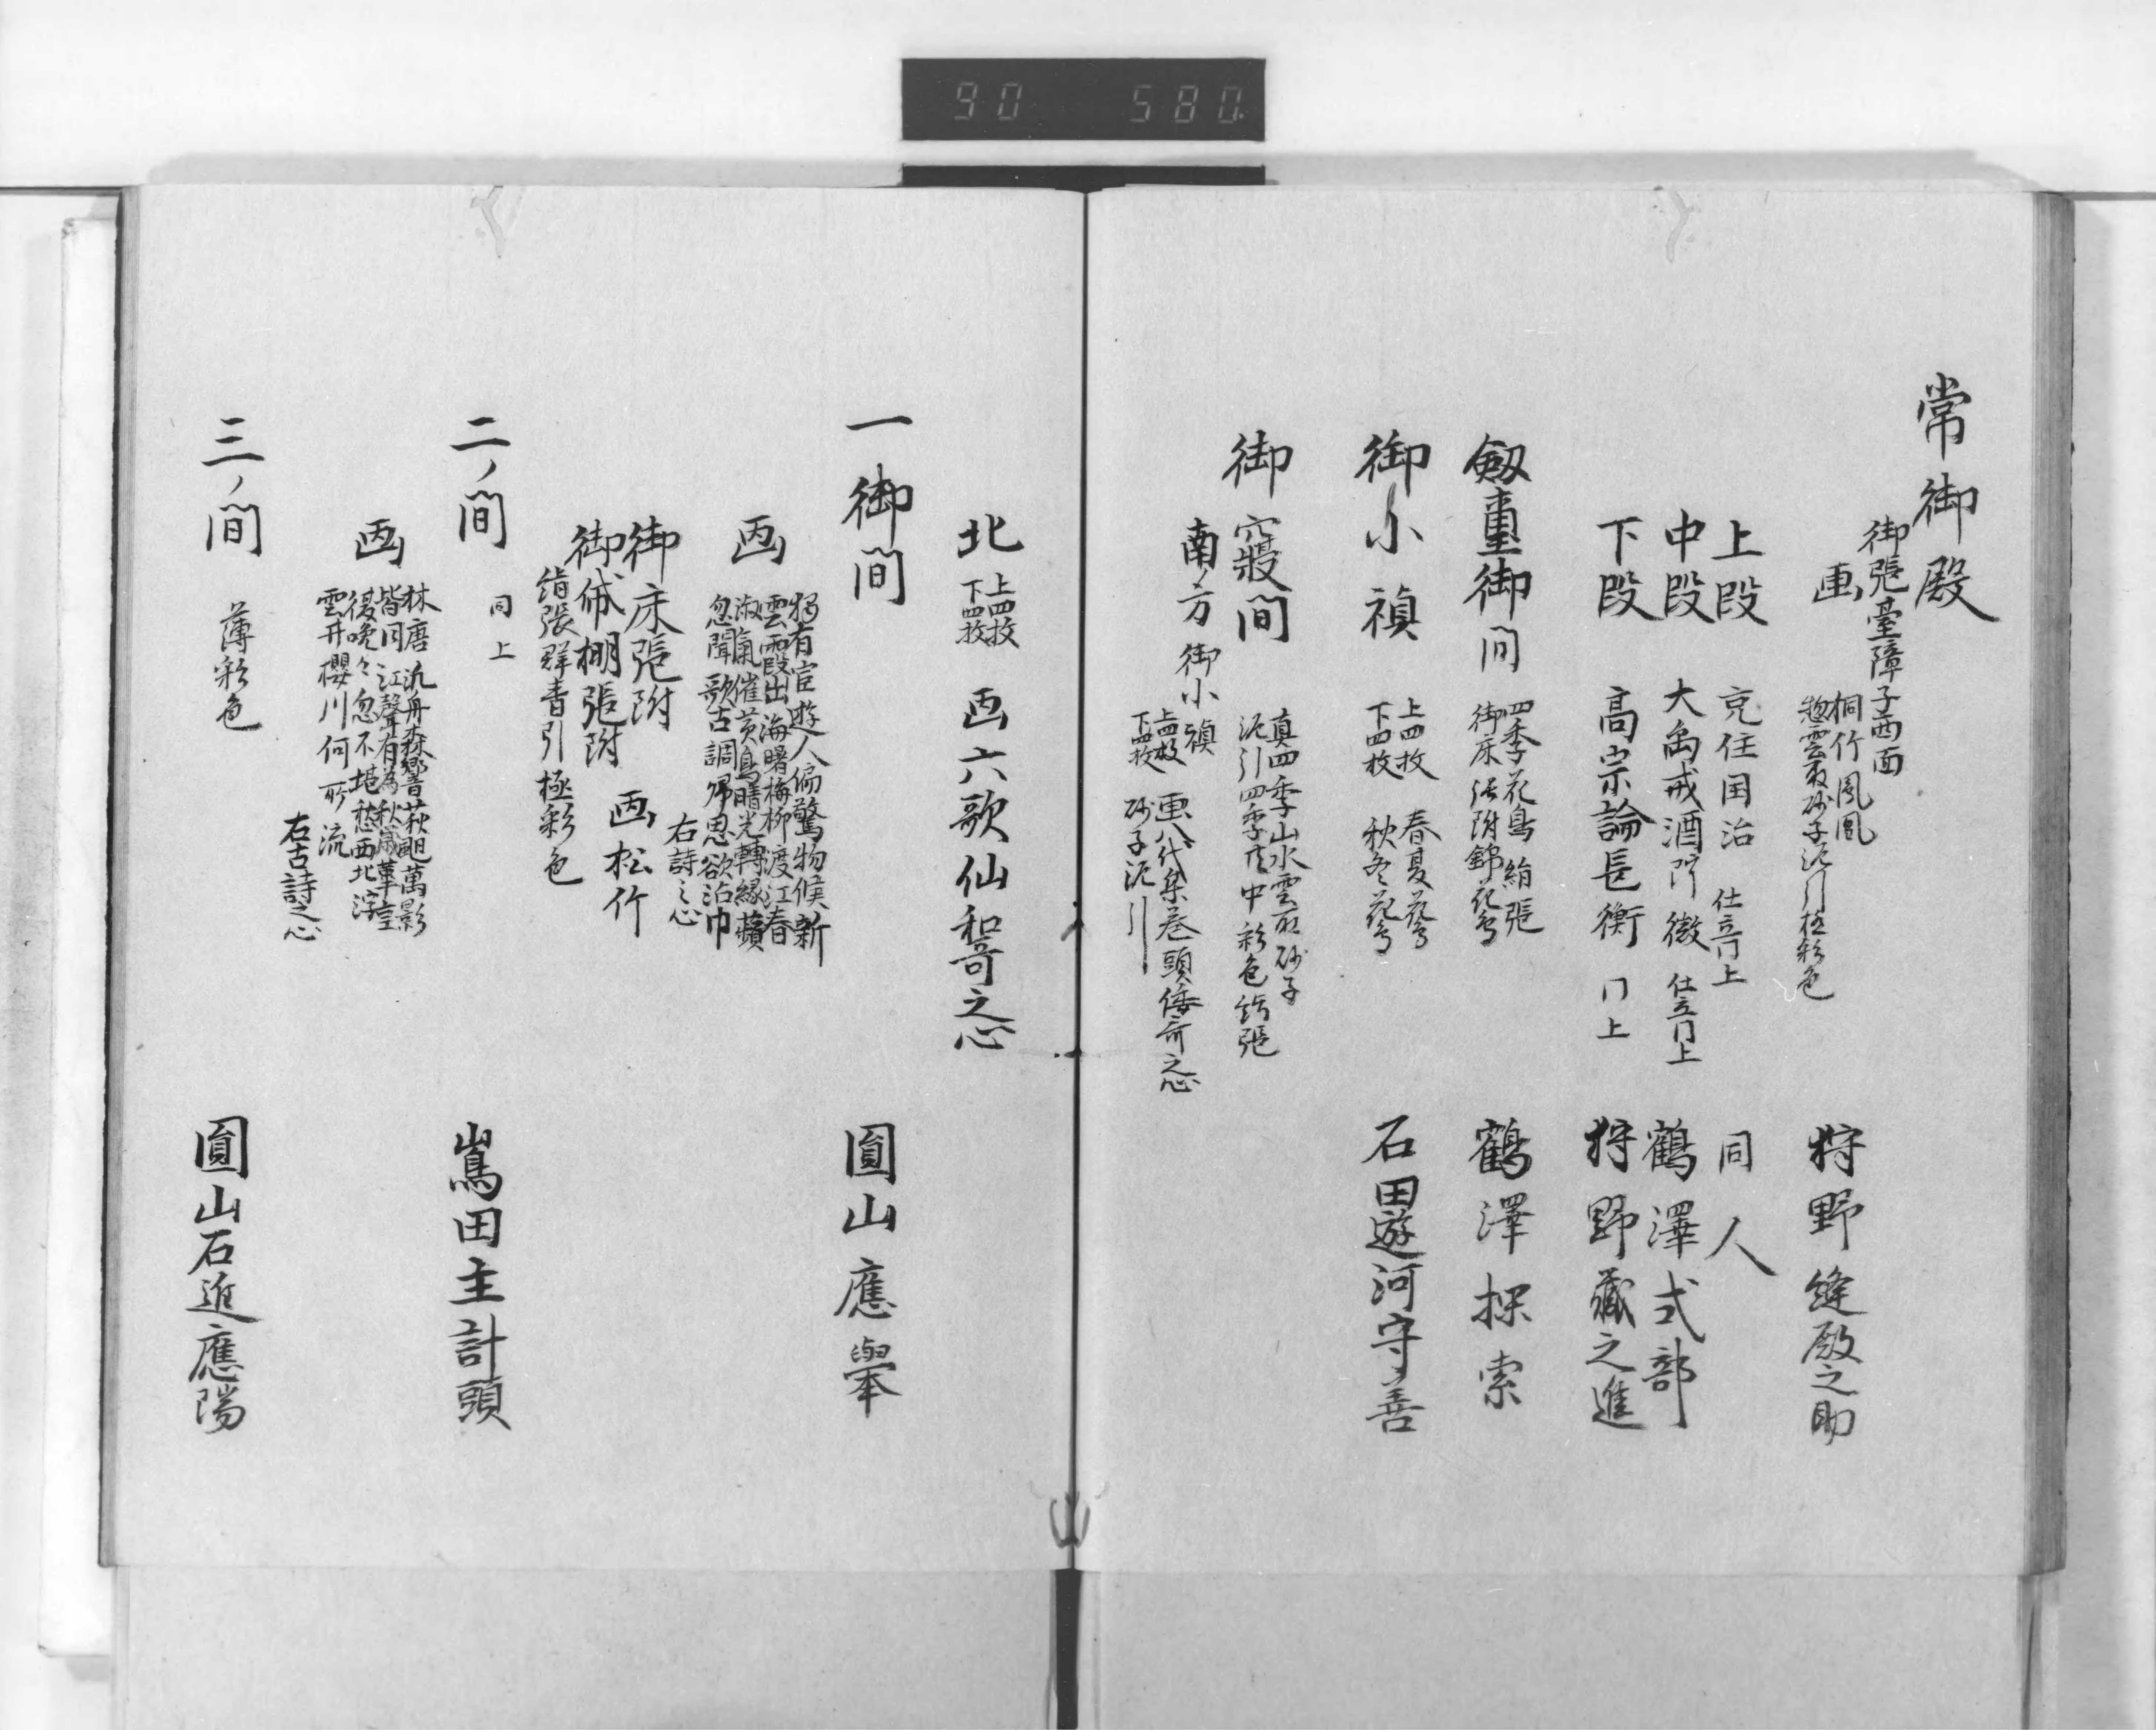 90 580.
常御殿
御張臺障子西面
画 桐竹鳳凰
惣雲取砂子泥引極彩色 狩野縫殿之助
上段 堯任国治 仕立同上 同人
中段 大禹戒酒防微 仕立同上 鶴澤式部
下段 高宗論良衡 同上 狩野蔵之進
剱璽御间 四季花鳥絹張
御床張附錦花鳥 鶴澤探索
御小襖 上四枚 春夏花鳥
下四枚 秋冬花鳥 石田遊河守善
御寝間 真四季山水雲取砂子
泥引四季 中彩色絹張
南ノ方 御小襖
上四枚
下四枚 画八代集巻頭倭哥之心
砂子泥引
北 上四枚
下四枚 画六歌仙和哥之心
一御間 圓山應舉
画 獨有宦遊人偏驚物候新
雲霞出海曙梅柳渡江春
淑氣催黄鳥晴光轉緑蘋
忽聞歌古調帰思欲沾巾
右詩之心
御床張附 画松竹
御袋棚張附
絹張群青引極彩色
二ノ間 同上 嶌田主計頭
画 林唐汎舟森響荻颭萬影
皆同江聲有為秋歳華空
復晩々忽不堪愁西北浮
雲井櫻川何所流
右古詩之心
三ノ間 薄彩色 圓山右近應陽